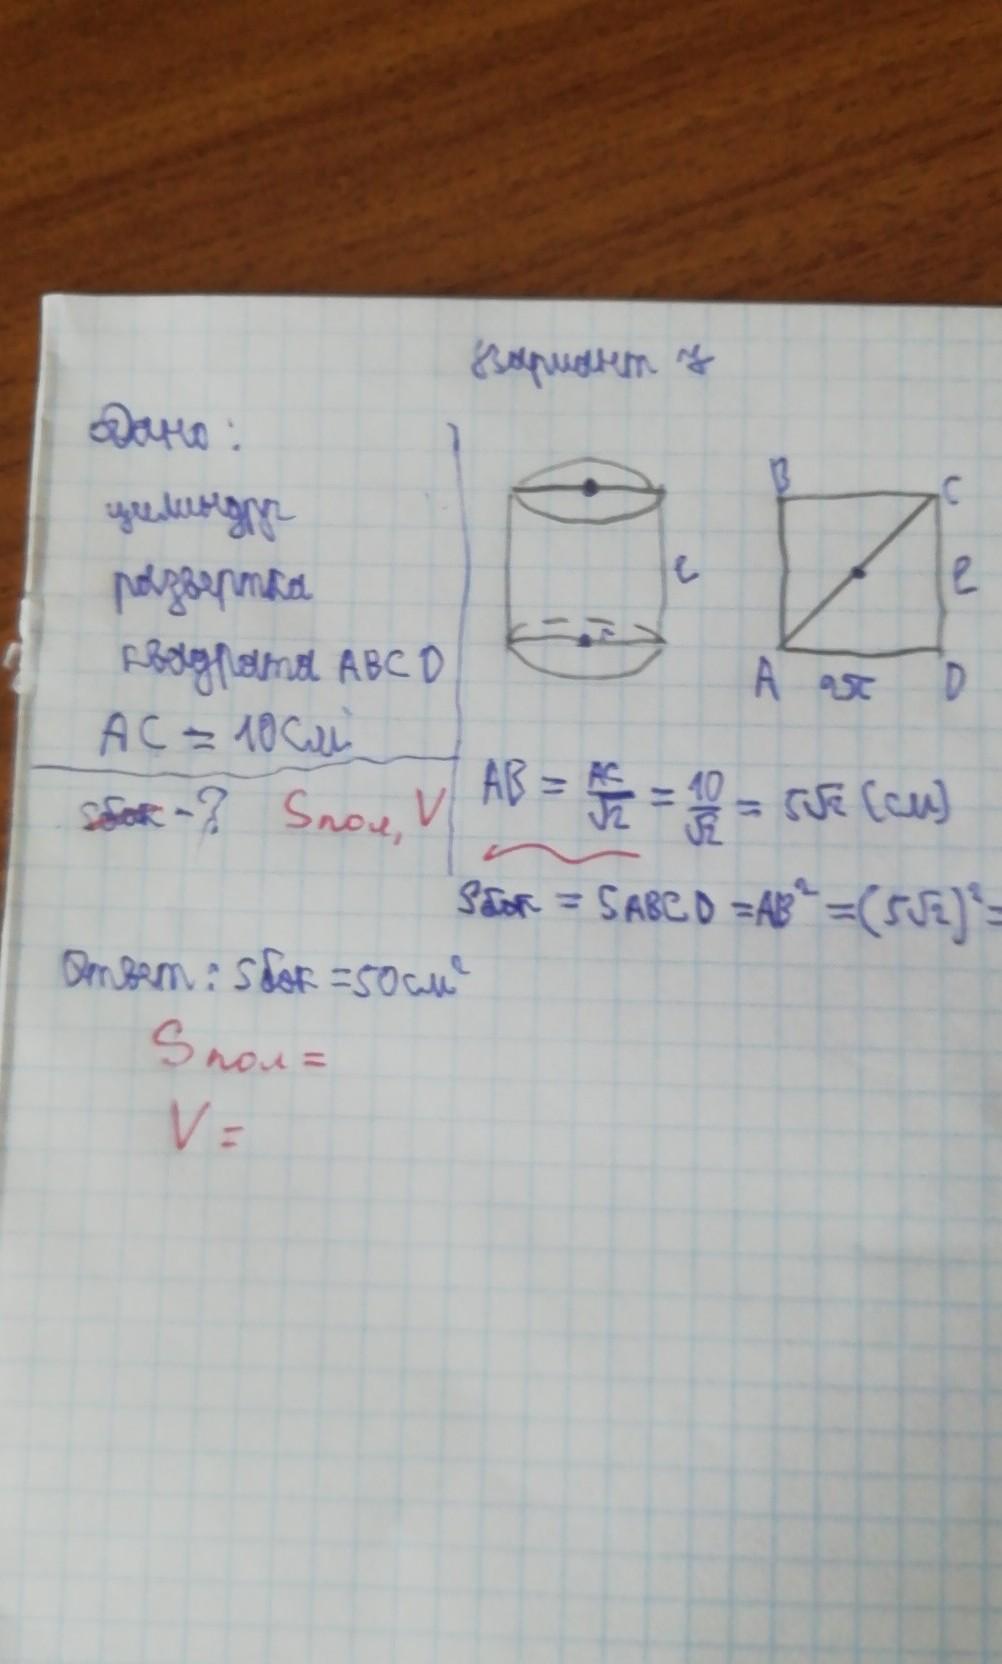 Вариант 7
Дано:
цилиндр
развертка
квадрата ABCD
AC = 10 см
Sбок - ? Sпол, V
B C
ℓ ℓ
r
A D
AB = AC/√2 = 10/√2 = 5√2 (см)
Sбок = SABCD = AB² = (5√2)² =
Ответ: Sбок = 50 см²
Sпол =
V =